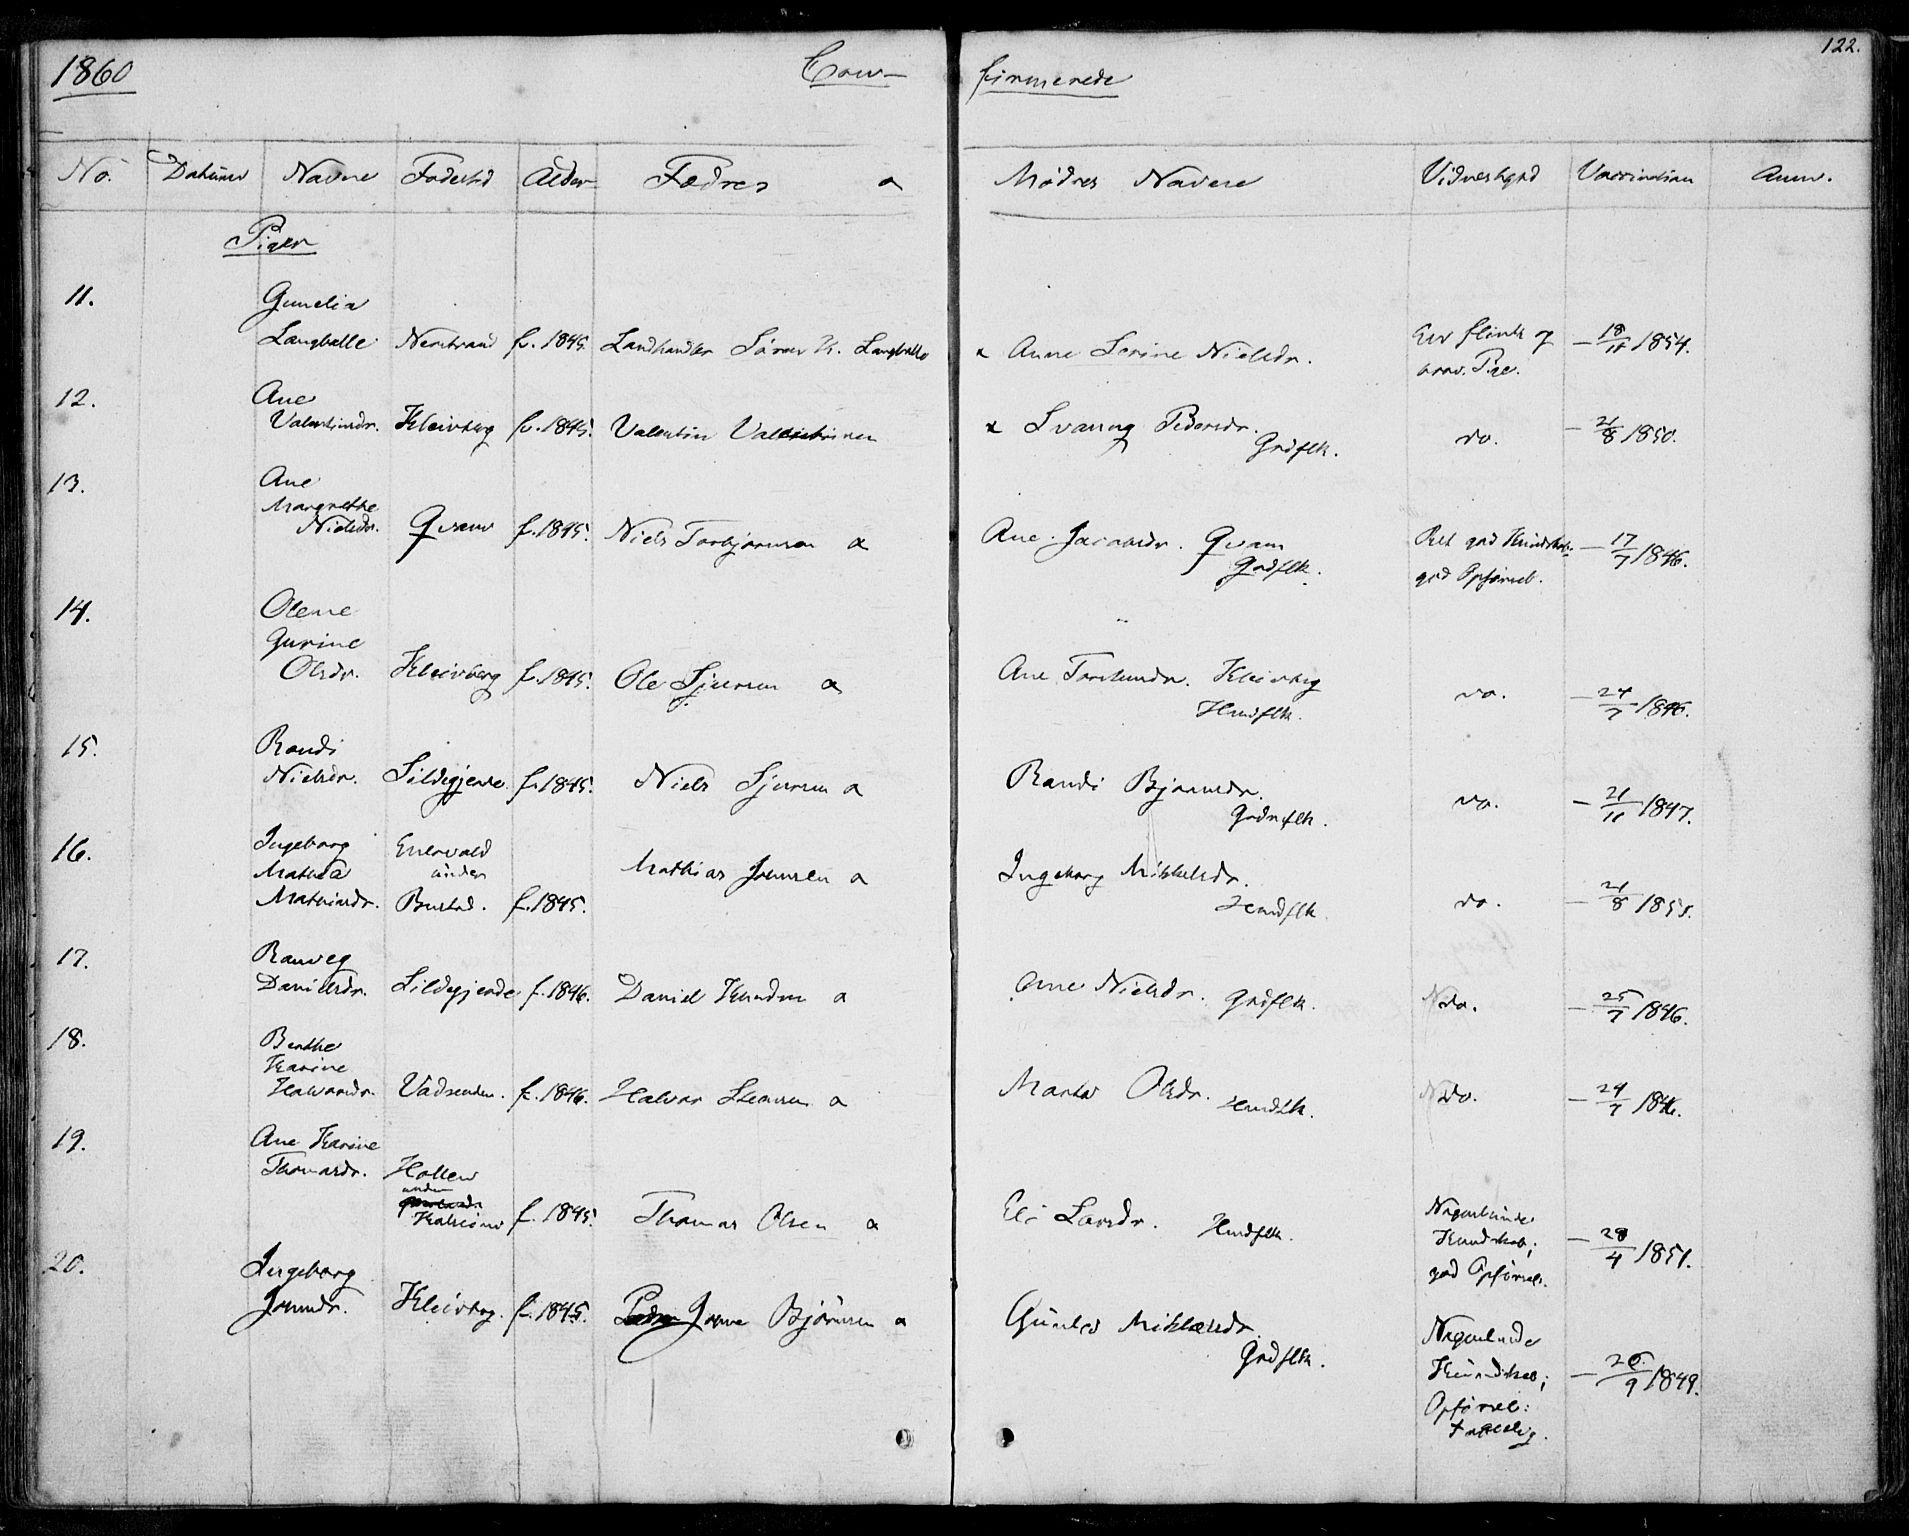 122.
1860 Con- firmerede
No. Datum Navne Fødested Alder Fædres & Mødres Navne Vidnesbyrd Vaccination Anm.
Piger
11. Gunelia
Langballe Nerstrand f. 1845. Landhandler Sören K. Langballe & Anne Serine Nielsdr. En flink og brav Pige. – 18/11 1854.
12. Ane
Valentinsdr. Kleivberg f. 1845. Valentin Valentinsen & Svanaug Pedersdr. Grdflk. do. – 21/8 1850.
13. Ane
Margrethe
Nielsdr. Qvam f. 1845. Niels Torbjörnsen & Ane Jacobsdr. Qvam Grdflk. Ret god Kundskab. god Opførsel. – 17/7 1846.
14. Olene
Gurine
Olsdr. Kleivberg f. 1845. Ole Sjursen & Ane Torstensdr. Kleivberg Hmdflk. do. – 24/7 1846.
15. Randi
Nielsdr. Sildegjerde f. 1845. Niels Sjursen & Randi Bjørnsdr. Grdmflk. do. – 21/11 1847.
16. Ingeborg
Mathea
Mathiasdr. under
Bustad. f. 1845. Mathias Jonsen & Ingeborg Mikkelsdr. Hmdflk. do. – 21/8 1851.
17. Ranveg
Danielsdr. Sildegjerde f. 1846. Daniel Knudsen & Ane Nielsdr. Grdflk. do. – 25/7 1846.
18. Berthe
Karine
Halvardr. Vadsenden. f. 1846. Halvor Steensen & Marta Olsdr. Hmdflk. do. – 24/7 1846.
19. Ane Karine
Thomasdr. Hollen
under
f. 1845. Thomas Olsen & Eli Larsdr. Hmdflk. Nogenlunde
Kundskab;
god Opførsel. – 28/4 1851.
20. Ingeborg
Jonsdr. Kleivberg. f. 1845. Jonne Björnsen & Gunhild Mikkelsdr. Grdflk. Nogenlunde
Kundskab;
Opførsel:
– 26/9 1849.